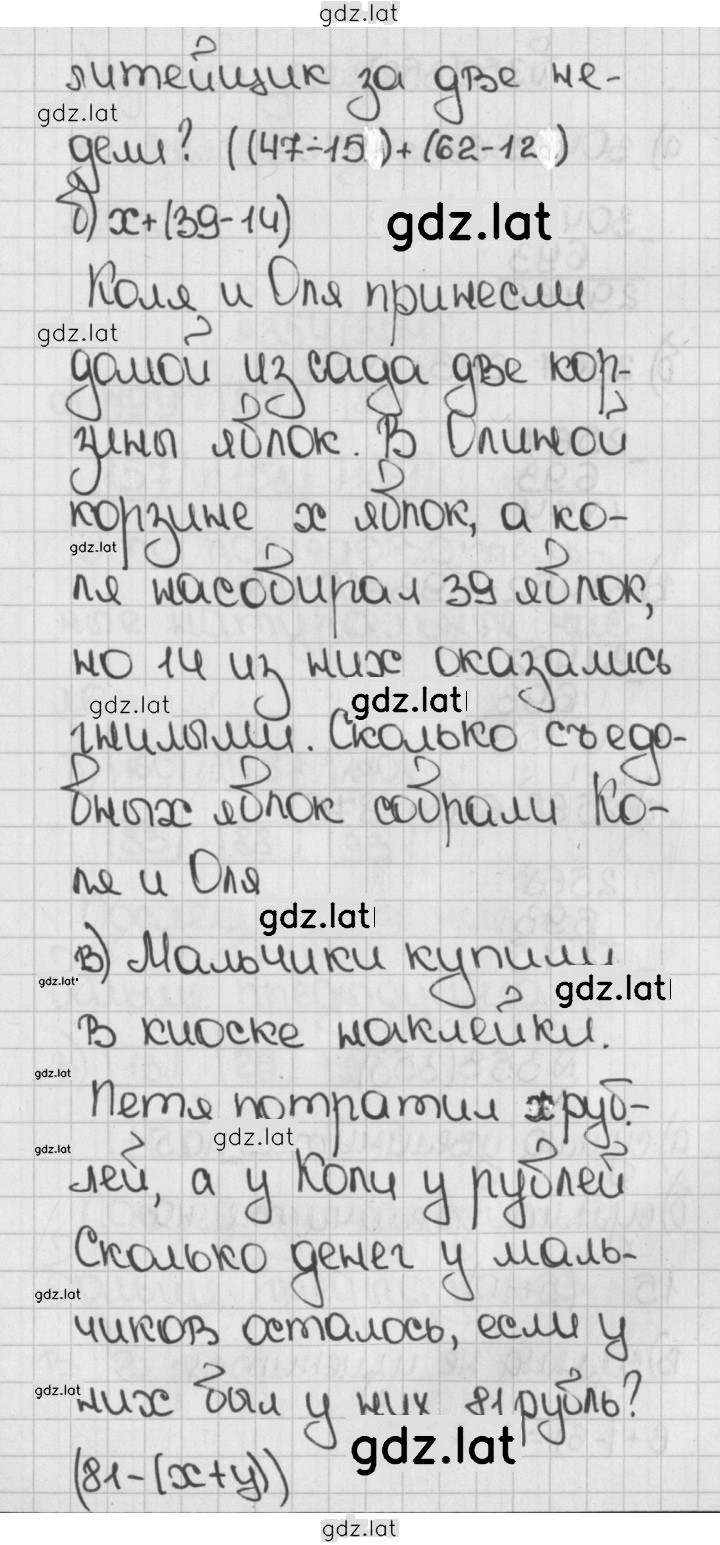 gdz.lat
литейщик за две не-
gdz.lat
дели? ((47-15)+(62-12))
б) x+(39-14)
gdz.lat
Коля и Оля принесли
gdz.lat
домой из сада две кор-
зины яблок. В Олиной
корзине x яблок, а Ко-
gdz.lat
ля насобирал 39 яблок,
но 14 из них оказались
gdz.lat
gdz.lat
гнилыми. Сколько съедо-
бных яблок собрали Ко-
ля и Оля
gdz.lat
в) Мальчики купили
gdz.lat
gdz.lat
в киоске наклейки.
gdz.lat
Петя потратил x руб-
gdz.lat
gdz.lat
лей, а у Коли y рублей
Сколько денег у маль-
gdz.lat
чиков осталось, если у
gdz.lat
них был у них 81 рубль?
gdz.lat
(81-(x+y))
gdz.lat